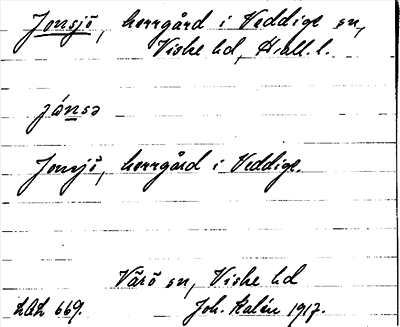 Jonsjö, herrgård i Veddige sn,
Viske hd, Hall. l.
jánsə
Jonsjö, herrgård i Veddige.
Värö sn, Viske hd
LAL 669. Joh. Kalén 1917.